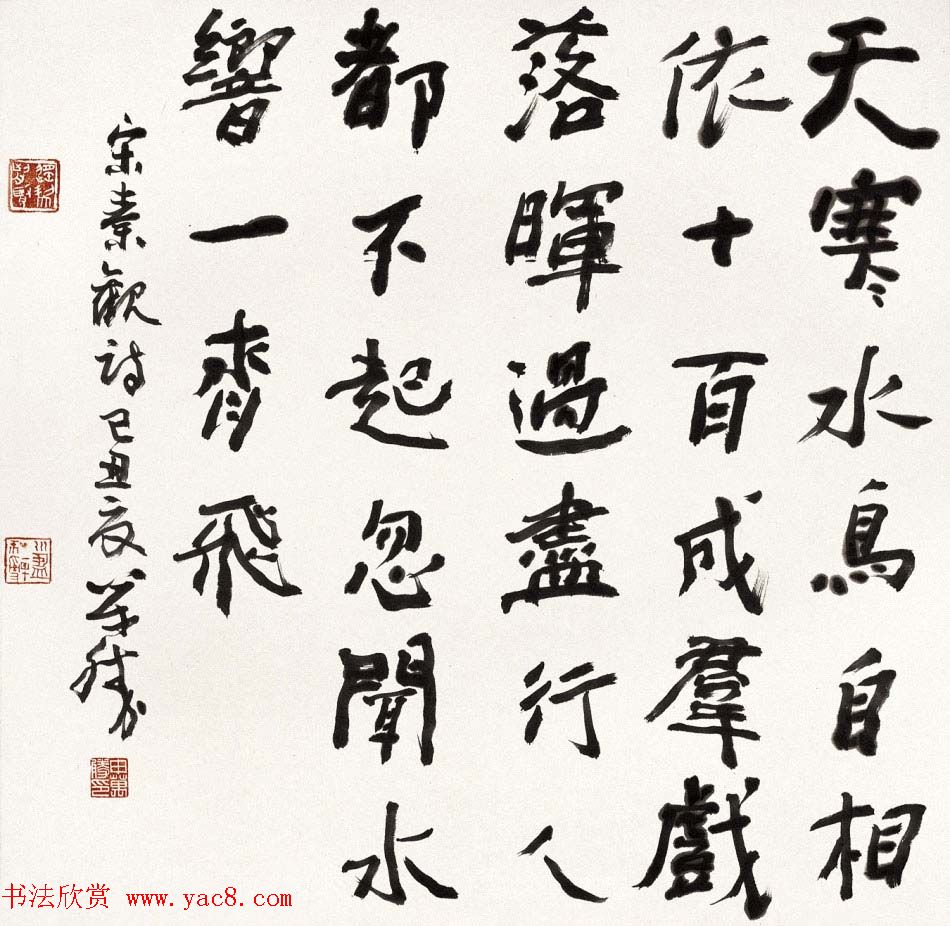 天寒水鳥自相
依十百成羣戲
落暉過盡行人
都不起忽聞水
響一齊飛
宋秦觀詩己丑夏萬勝
申萬勝印
书法欣赏 www.yac8.com